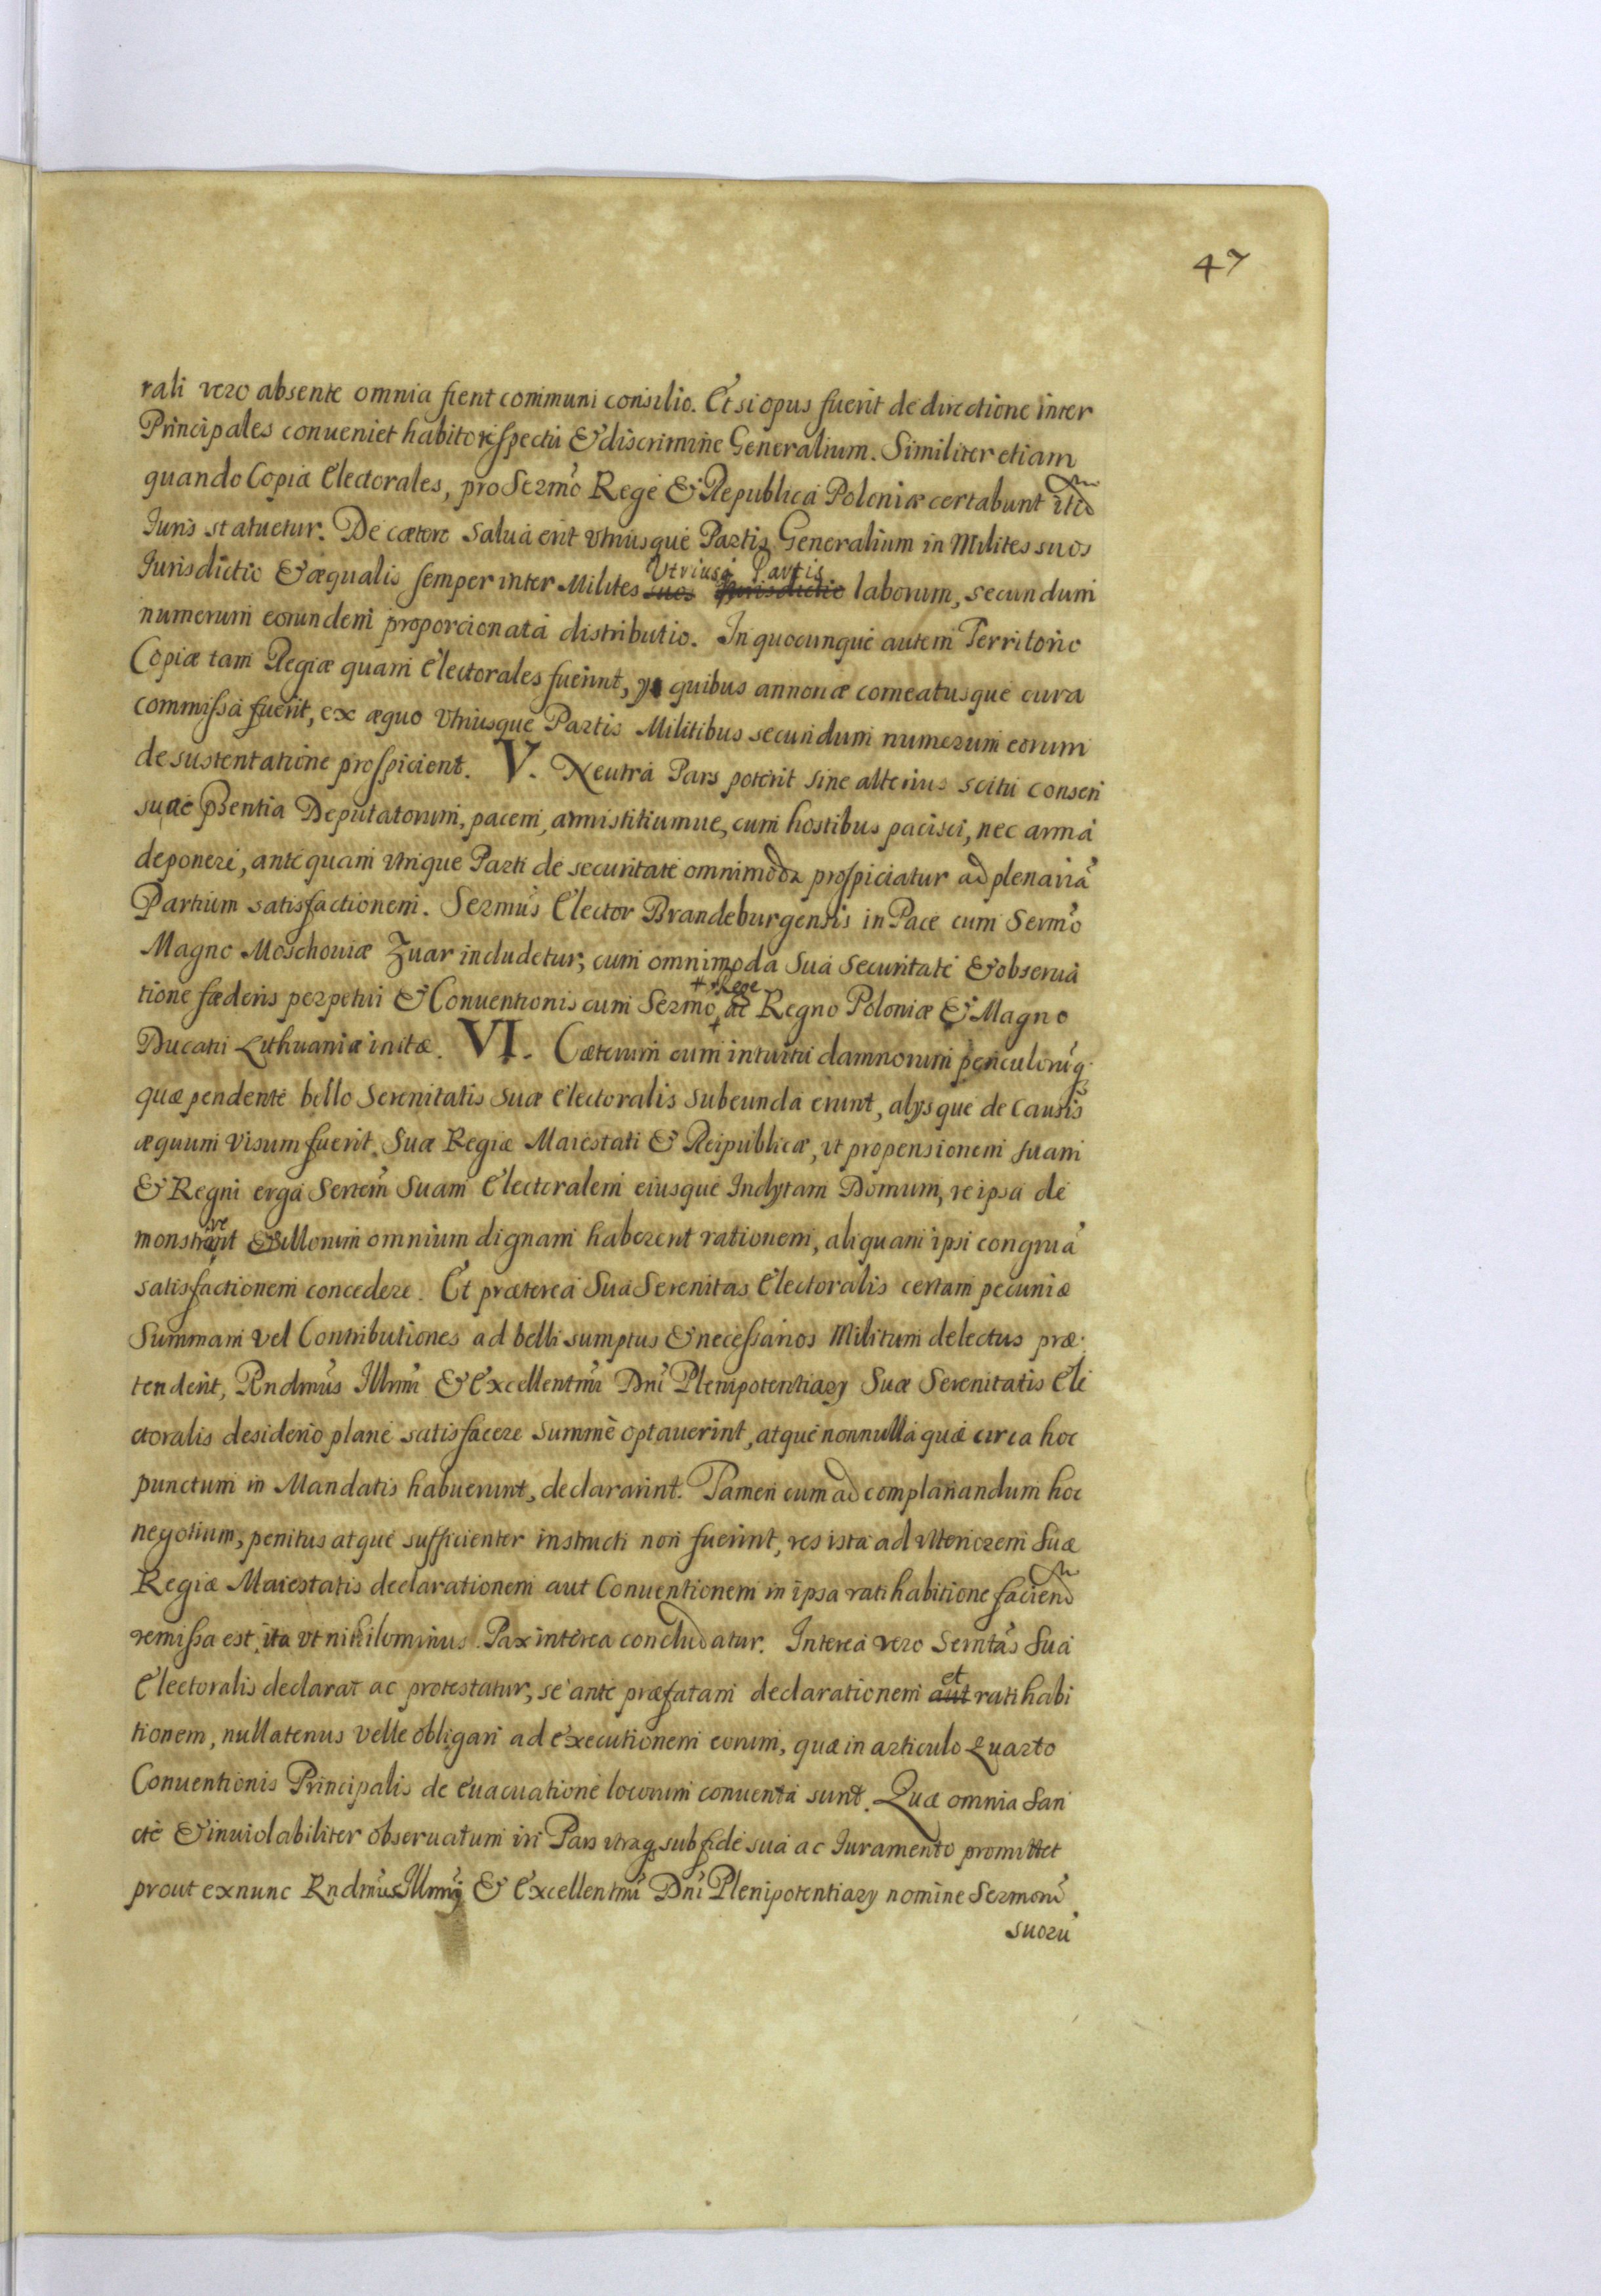 47
rali vero absente omnia fient communi consilio. Et si opus fuerit de directione inter
Principales conueniet habito respectu & discrimine Generalium. Similiter etiam
quando Copiæ Electorales, pro Sermo Rege & Republica Poloniæ certabunt
Iuris statuetur. De cætero salua erit vtriusque Partis Generalium in Milites suos
Iurisdictio & æqualis semper inter Milites suos Iurisdictio Vtriusq Partis laborum, secundum
numerum eorundem proporcionata distributio. In quocunque autem Territorio
Copiæ tam Regiæ quam Electorales fuerint, quibus annonæ comeatusque cura
commissa fuerit, ex æquo vtriusque Partis Militibus secundum numerum eorum
de sustentatione prospicient. V. Neutra Pars poterit sine alterius scitu consen
su ac pSentia Deputatorum, pacem, armistitiumue, cum hostibus pacisci, nec arma
deponere, ante quam vtrique Parti de securitate omnimoda prospiciatur ad plenariā
Partium satisfactionem. Sermus Elector Brandeburgensis in Pace cum Sermo
Magno Moschouiæ Zuar includetur, cum omnimoda sua securitate & obserua
tione fæderis perpetui & Conuentionis cum Sermo + Rege ac Regno Poloniæ & Magno
Ducatu Lithuaniæ initæ. VI. Cæterum cum intuitu damnorum periculorūq
quæ pendente bello Serenitatis suæ Electoralis subeunda erunt, alysque de Causis
æquum visum fuerit. Suæ Regiæ Maiestati & Reipublicæ, vt propensionem suam
& Regni erga Serem Suam Electoralem eiusque Inclytam Domum, re ipsa de
monstrarent & illorum omnium dignam haberent rationem, aliquam ipsi congruā
satisfactionem concedere. Et præterea Sua Serenitas Electoralis certam pecuniæ
Summam vel Contributiones ad belli sumptus & necessarios Militum delectus præ
tenderit, Rndmus Illmi & Excellentmi Dni Plenipotentiary Suæ Serenitatis Ele
ctoralis desiderio plane satisfacere summè optauerint, atque nonnulla quæ circa hoc
punctum in Mandatis habuerunt, declararint. Tamen cum ad complanandum hoc
negotium, penitus atque sufficienter instructi non fuerint, res ista ad vlteriorem Suæ
Regiæ Maiestatis declarationem aut Conuentionem in ipsa ratihabitione faciend
remissa est, ita vt nihilominus Pax interea concludatur. Interea vero Serntas Sua
Electoralis declarat ac protestatur, se ante præfatam declarationem aut et ratihabi
tionem, nullatenus velle obligari ad executionem eorum, quæ in articulo Quarto
Conuentionis Principalis de euacuatione locorum conuenta sunt. Quæ omnia San
cte & inuiolabiliter obseruatum iri Pars vtraq sub fide sua ac Iuramento promittet
prout exnunc Rndmus Illmi & Excellentmi Dni Plenipotentiary nomine Sermorū
suorū